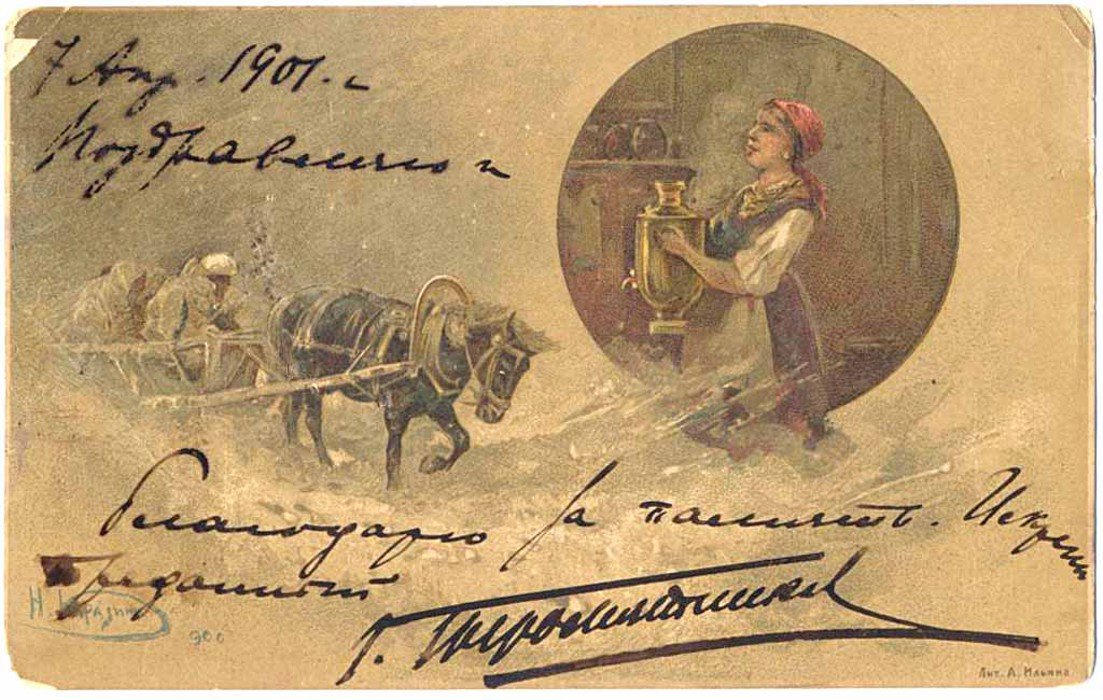 7 Апр. 1901. г
Поздравляю и
благодарю за память. Искренн
преданный
Г.
Н. Каразинъ
900
Лит. А. Ильина